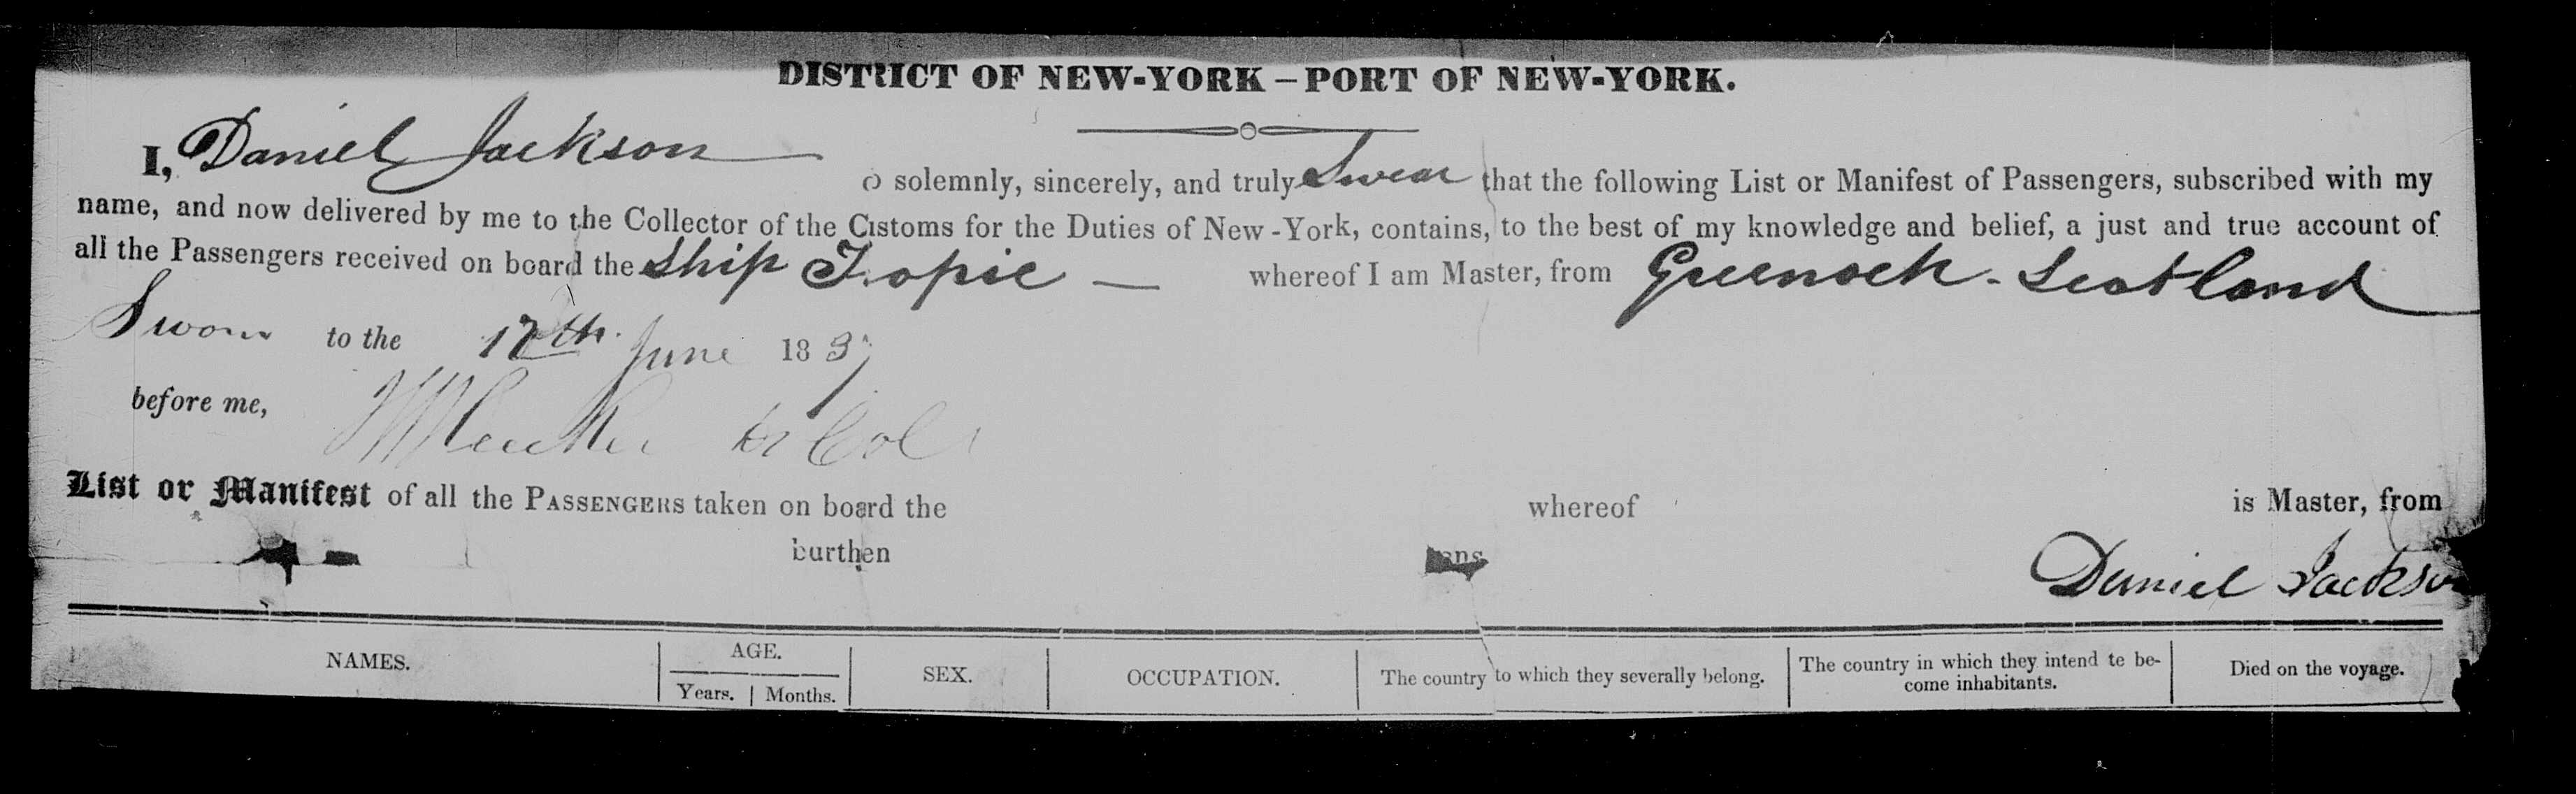 DISTRICT OF NEW-YORK – PORT OF NEW-YORK.
I, Daniel Jackson o solemnly, sincerely, and truly Swear that the following List or Manifest of Passengers, subscribed with my
name, and now delivered by me to the Collector of the Customs for the Duties of New-York, contains, to the best of my knowledge and belief, a just and true account of
all the Passengers received on board the Ship Tropic — whereof I am Master, from Greenock - Scotland
Sworn to the 17th June 1837
before me,
List or Manifest of all the PASSENGERS taken on board the whereof is Master, from
burthen tons
Daniel Jackson
NAMES. AGE. SEX. OCCUPATION. The country to which they severally belong. The country in which they intend te be-
come inhabitants. Died on the voyage.
Years. Months.